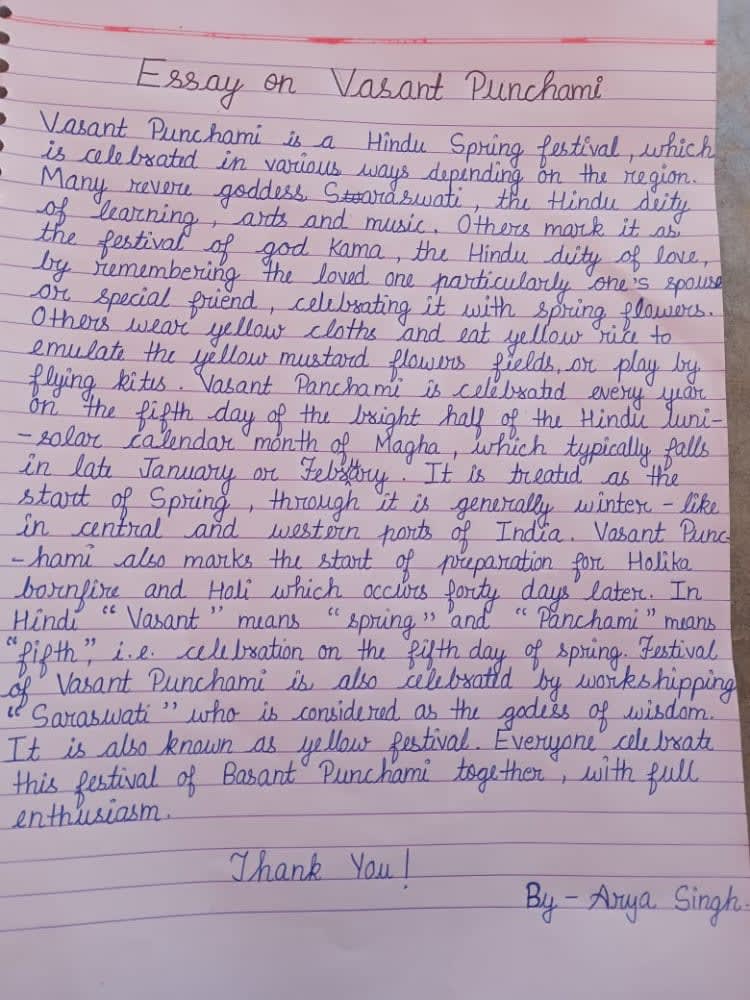 Essay on Vasant Punchami
Vasant Punchami is a Hindu Spring festival, which
is celebrated in various ways depending on the region.
Many revere goddess Saraswati, the Hindu deity
of learning, arts and music. Others mark it as
the festival of god Kama, the Hindu deity of love,
by remembering the loved one particularly one's spouse
or special friend, celebrating it with spring flowers.
Others wear yellow cloths and eat yellow rice to
emulate the yellow mustard flowers fields, or play by
flying kites. Vasant Panchami is celebrated every year
on the fifth day of the bright half of the Hindu luni-
-solar calendar month of Magha, which typically falls
in late January or February. It is treated as the
start of Spring, through it is generally winter-like
in central and western ports of India. Vasant Punc-
-hami also marks the start of preparation for Holika
bornfire and Holi which occurs forty days later. In
Hindi "Vasant" means "spring" and "Panchami" means
"fifth", i.e. celebration on the fifth day of spring. Festival
of Vasant Punchami is also celebrated by workshipping
"Saraswati" who is considered as the godess of wisdom.
It is also known as yellow festival. Everyone celebrate
this festival of Basant Punchami together, with full
enthusiasm.
Thank You!
By - Arya Singh.